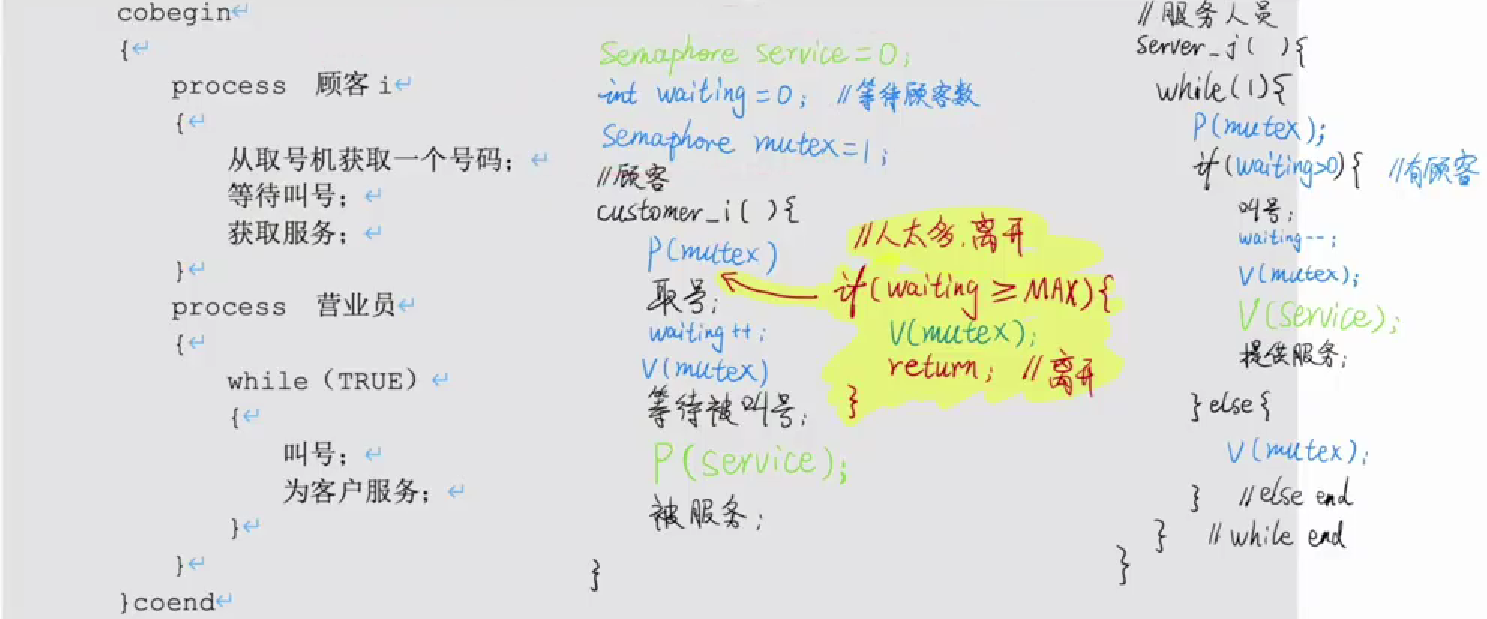 cobegin
{
process 顾客 i
{
从取号机获取一个号码;
等待叫号;
获取服务;
}
process 营业员
{
while (TRUE)
{
叫号;
为客户服务;
}
}
}coend
Semaphore service=0;
int waiting=0; //等待顾客数
Semaphore mutex=1;
//顾客
customer_i( ){
P(mutex)
取号;
waiting++;
V(mutex)
等待被叫号;
P(service);
被服务;
}
//人太多,离开
if(waiting≥MAX){
V(mutex);
return; //离开
}
//服务人员
Server_j( ){
while(1){
P(mutex);
if(waiting>0){ //有顾客
叫号;
waiting--;
V(mutex);
V(service);
提供服务;
}else{
V(mutex);
} //else end
} //while end
}